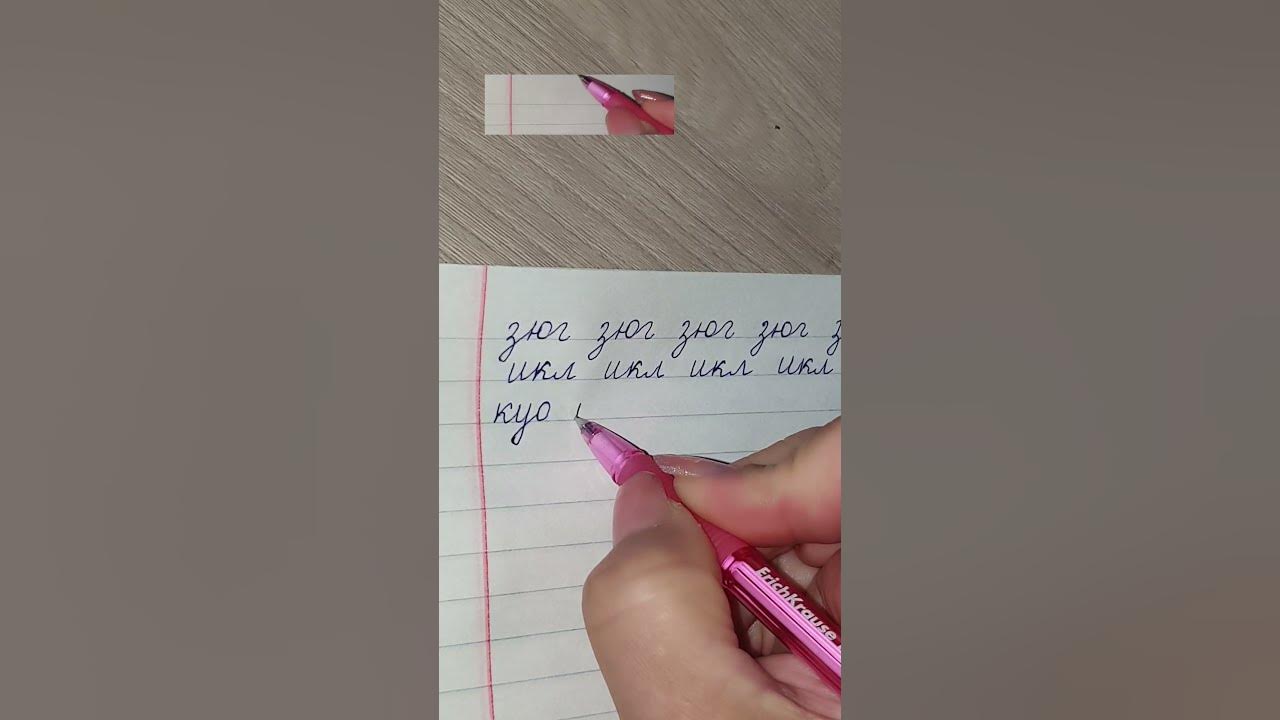 зюг зюг зюг зюг з
икл икл икл икл
куо
ErichKrause